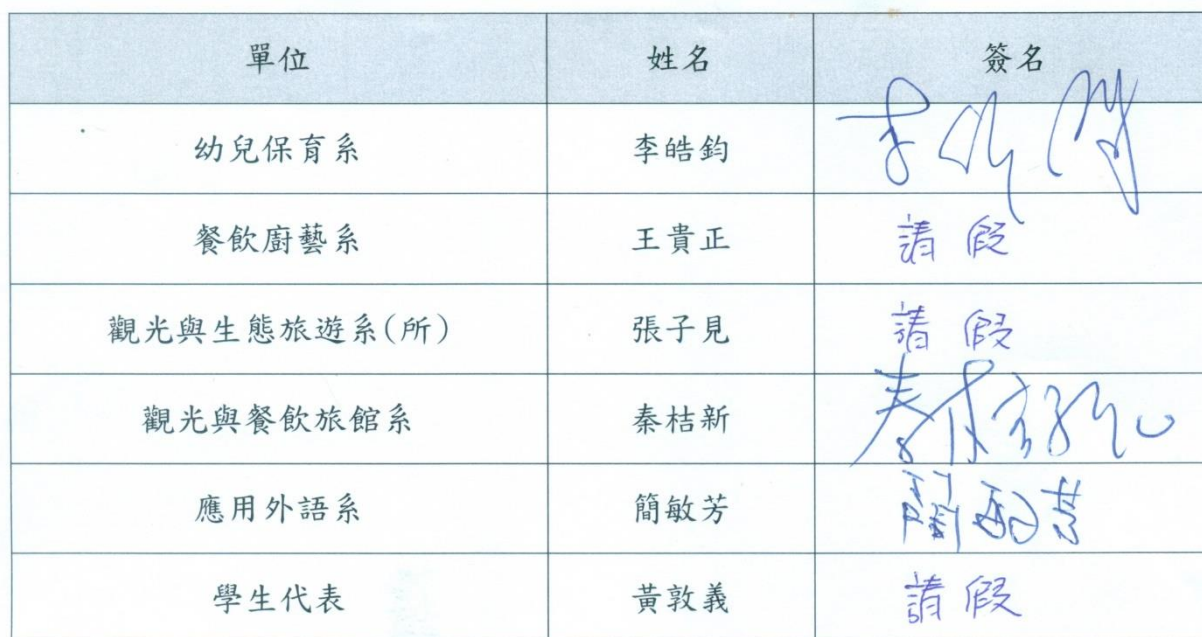 單位 姓名 簽名
幼兒保育系 李皓鈞
餐飲廚藝系 王貴正 請假
觀光與生態旅遊系(所) 張子見 請假
觀光與餐飲旅館系 秦桔新
應用外語系 簡敏芳
學生代表 黃敦義 請假